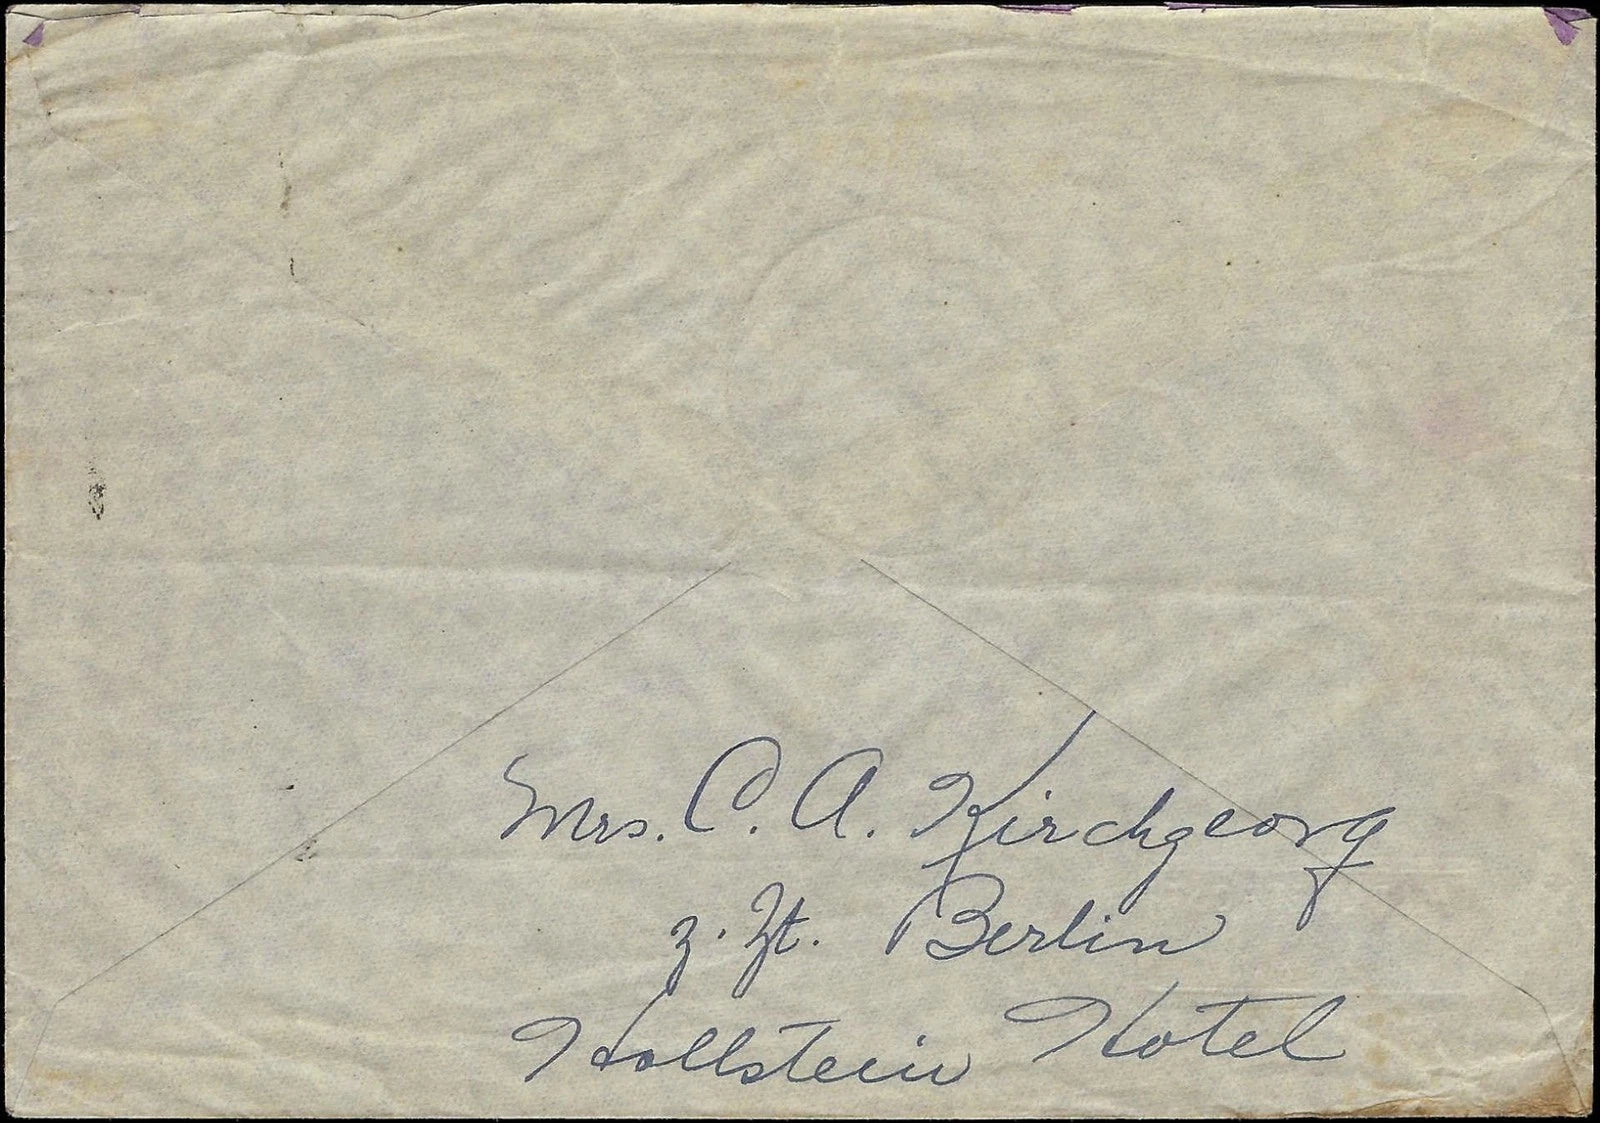 Mrs. C. A. Kirchgeorg
z. Zt. Berlin
Hollstein Hotel